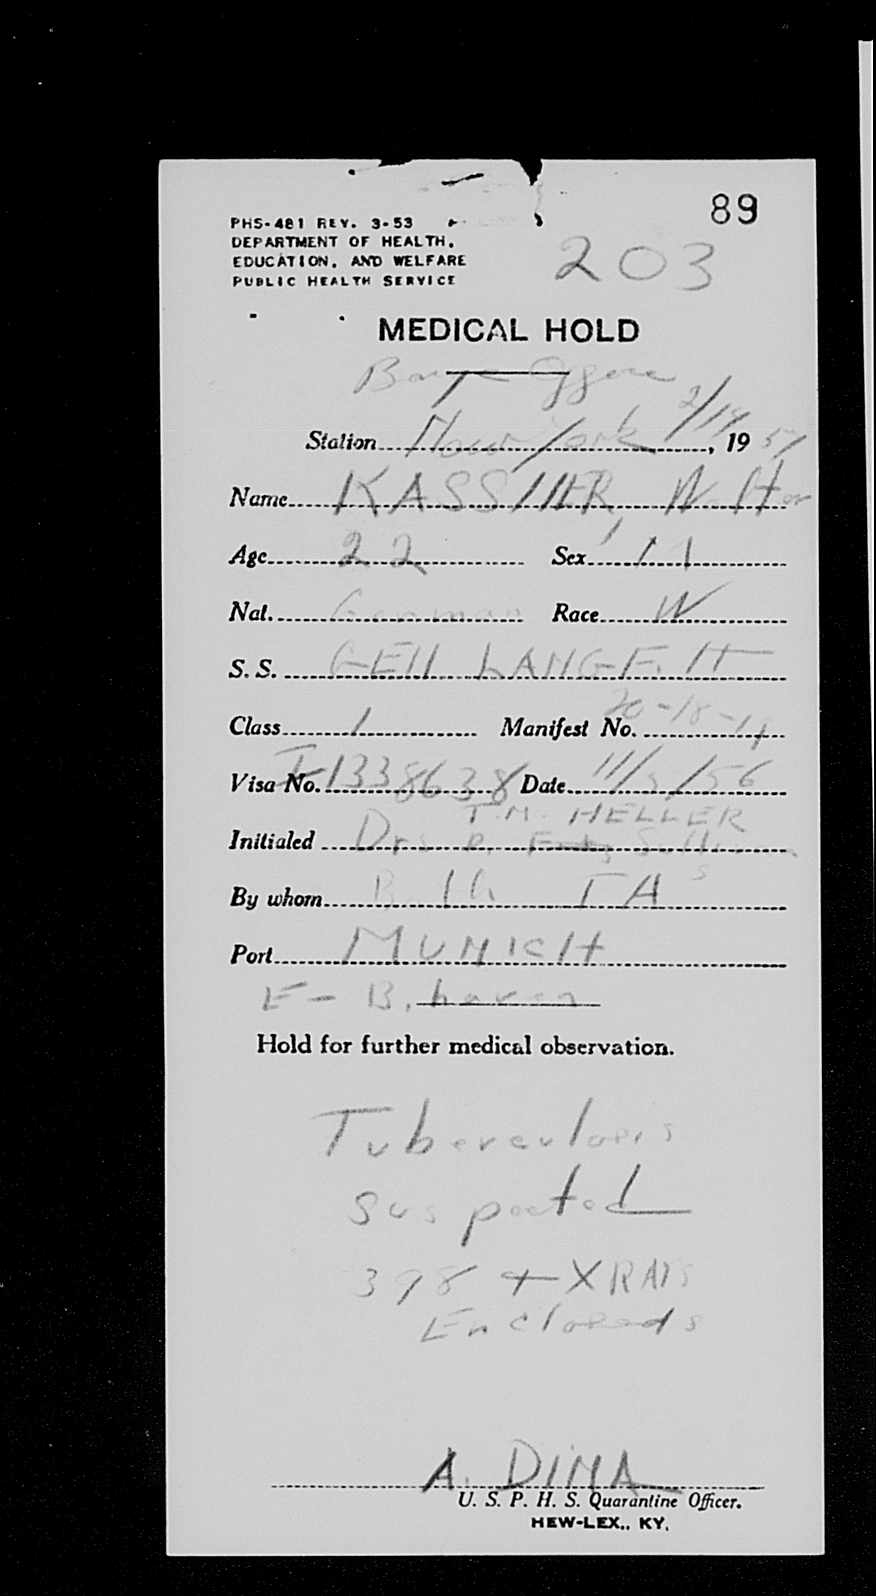 89
PHS-481 REV. 3-53
DEPARTMENT OF HEALTH,
EDUCATION, AND WELFARE
PUBLIC HEALTH SERVICE
203
MEDICAL HOLD
Station New York 2/14, 1957
Name
Age 22 Sex M
Nat. German Race W
S. S. GEN LANGFITT
Class 1 Manifest No. 20-18-14
Visa No. I-1338638 Date 11/5/56
T.M. HELLER
Initialed Drs
By whom Both
Port MUNICH
E - B. haven
Hold for further medical observation.
Tuberculosis
suspected
398 + XRAYS
Enclosed
A. DIMA
U. S. P. H. S. Quarantine Officer.
HEW-LEX., KY.